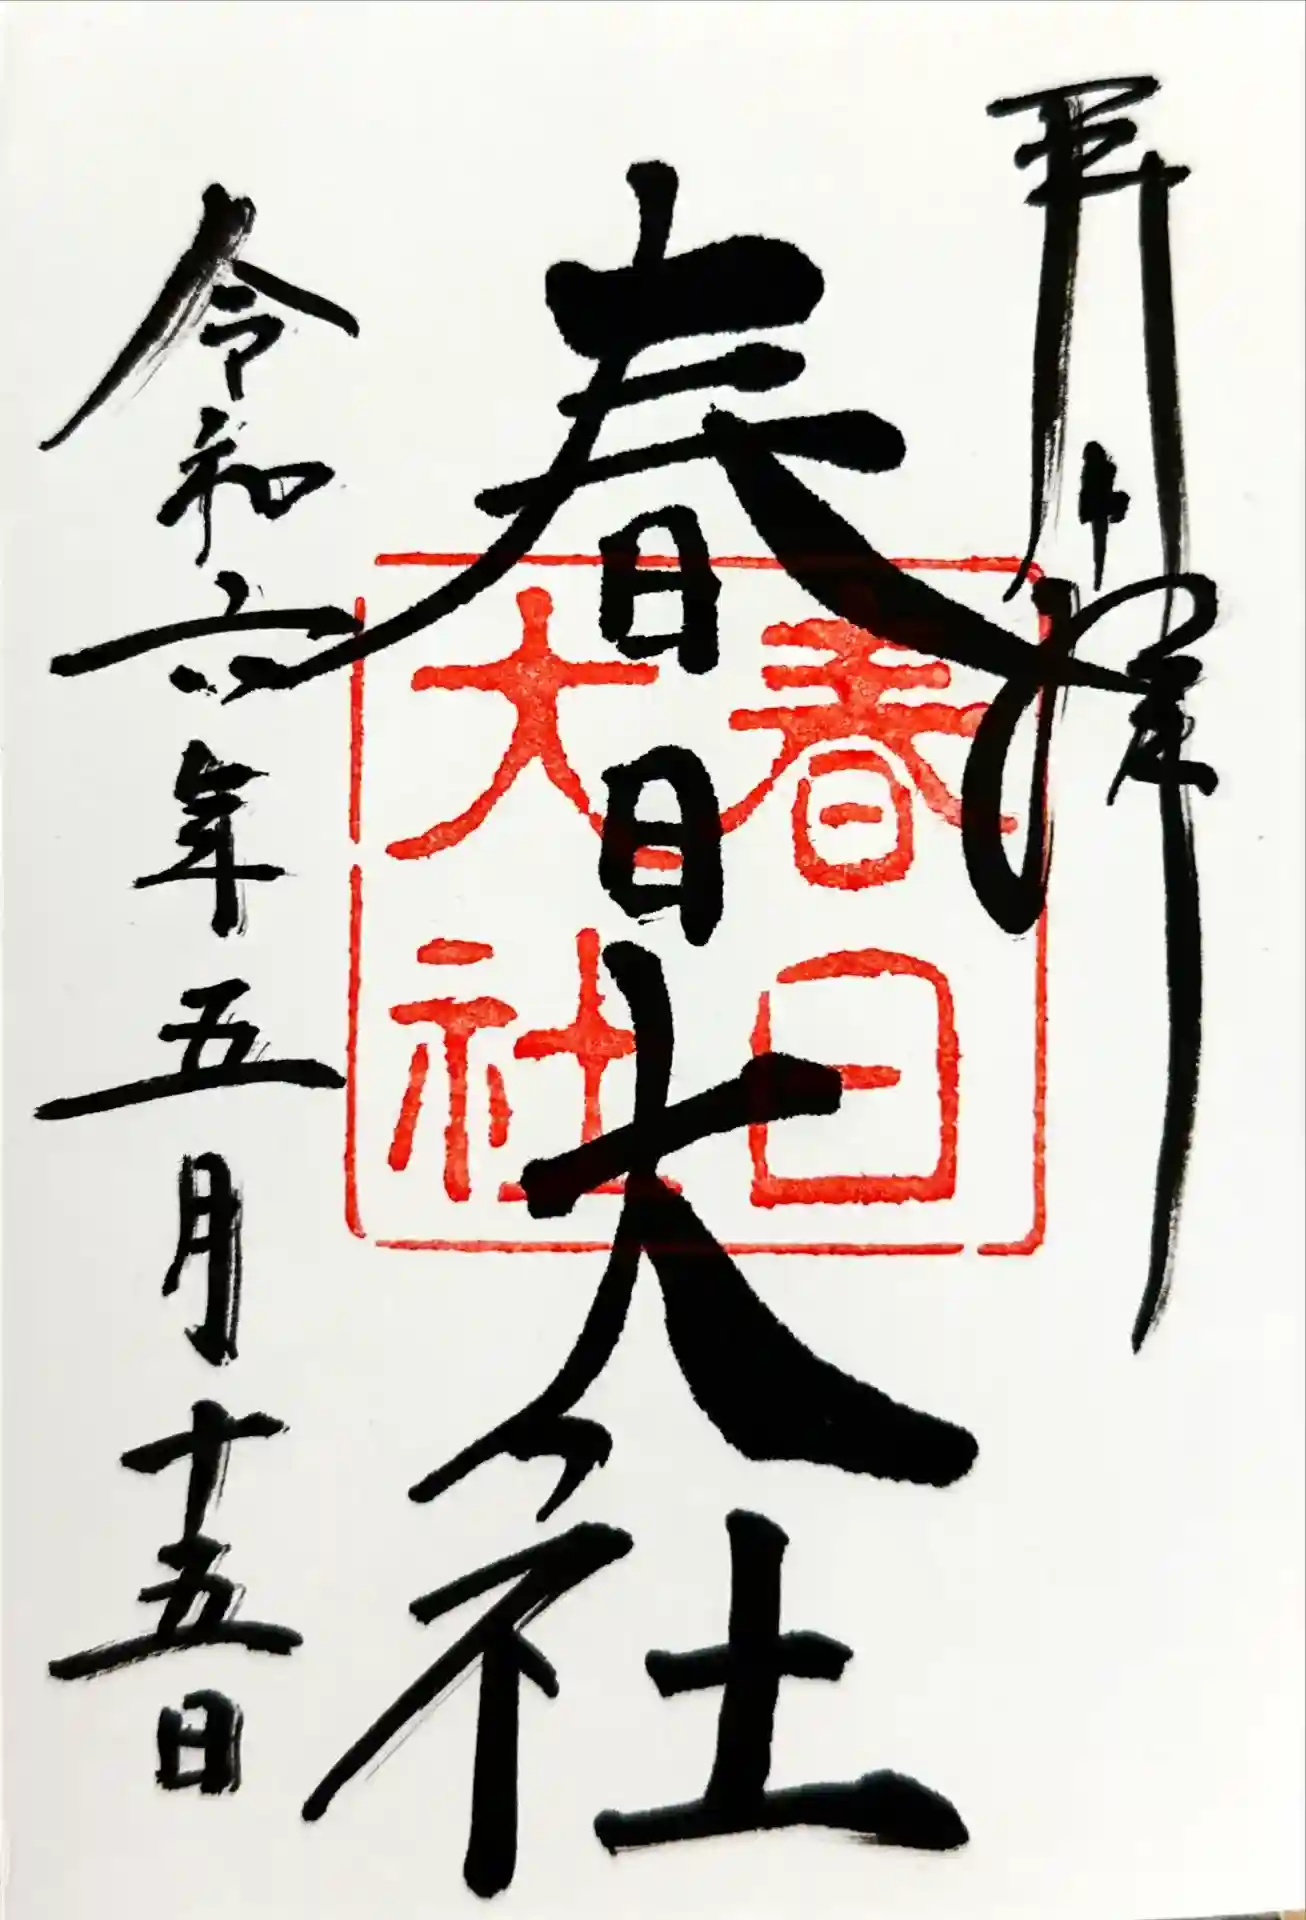 奉拝
春日大社
春日
大社
令和六年五月十五日